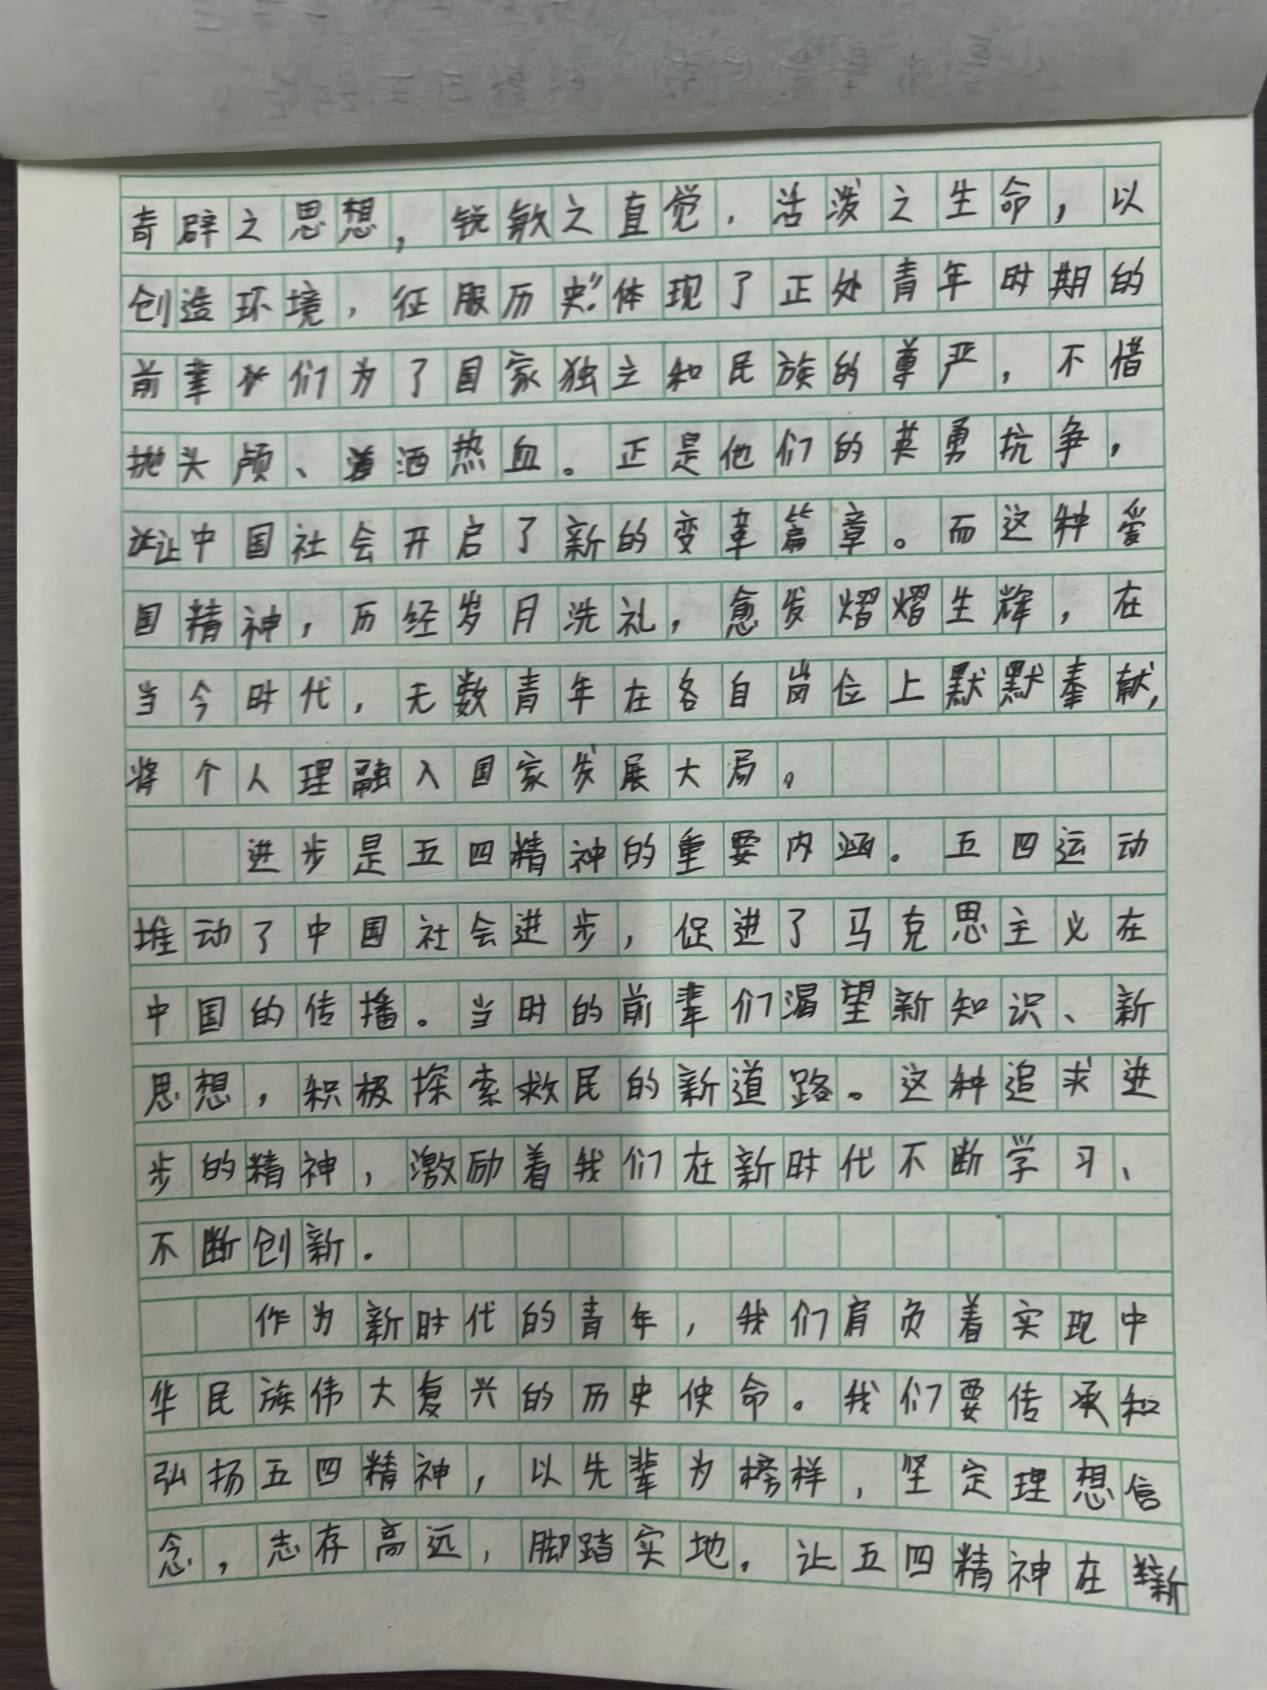 奇辟之思想，锐敏之直觉，活泼之生命，以
创造环境，征服历史"体现了正处青年时期的
前辈们为了国家独立和民族的尊严，不惜
抛头颅、洒热血。正是他们的英勇抗争，
让中国社会开启了新的变革篇章。而这种爱
国精神，历经岁月洗礼，愈发熠熠生辉，在
当今时代，无数青年在各自岗位上默默奉献，
将个人理融入国家发展大局。
进步是五四精神的重要内涵。五四运动
推动了中国社会进步，促进了马克思主义在
中国的传播。当时的前辈们渴望新知识、新
思想，积极探索救民的新道路。这种追求进
步的精神，激励着我们在新时代不断学习、
不断创新.
作为新时代的青年，我们肩负着实现中
华民族伟大复兴的历史使命。我们要传承和
弘扬五四精神，以先辈为榜样，坚定理想信
念，志存高远，脚踏实地.让五四精神在新